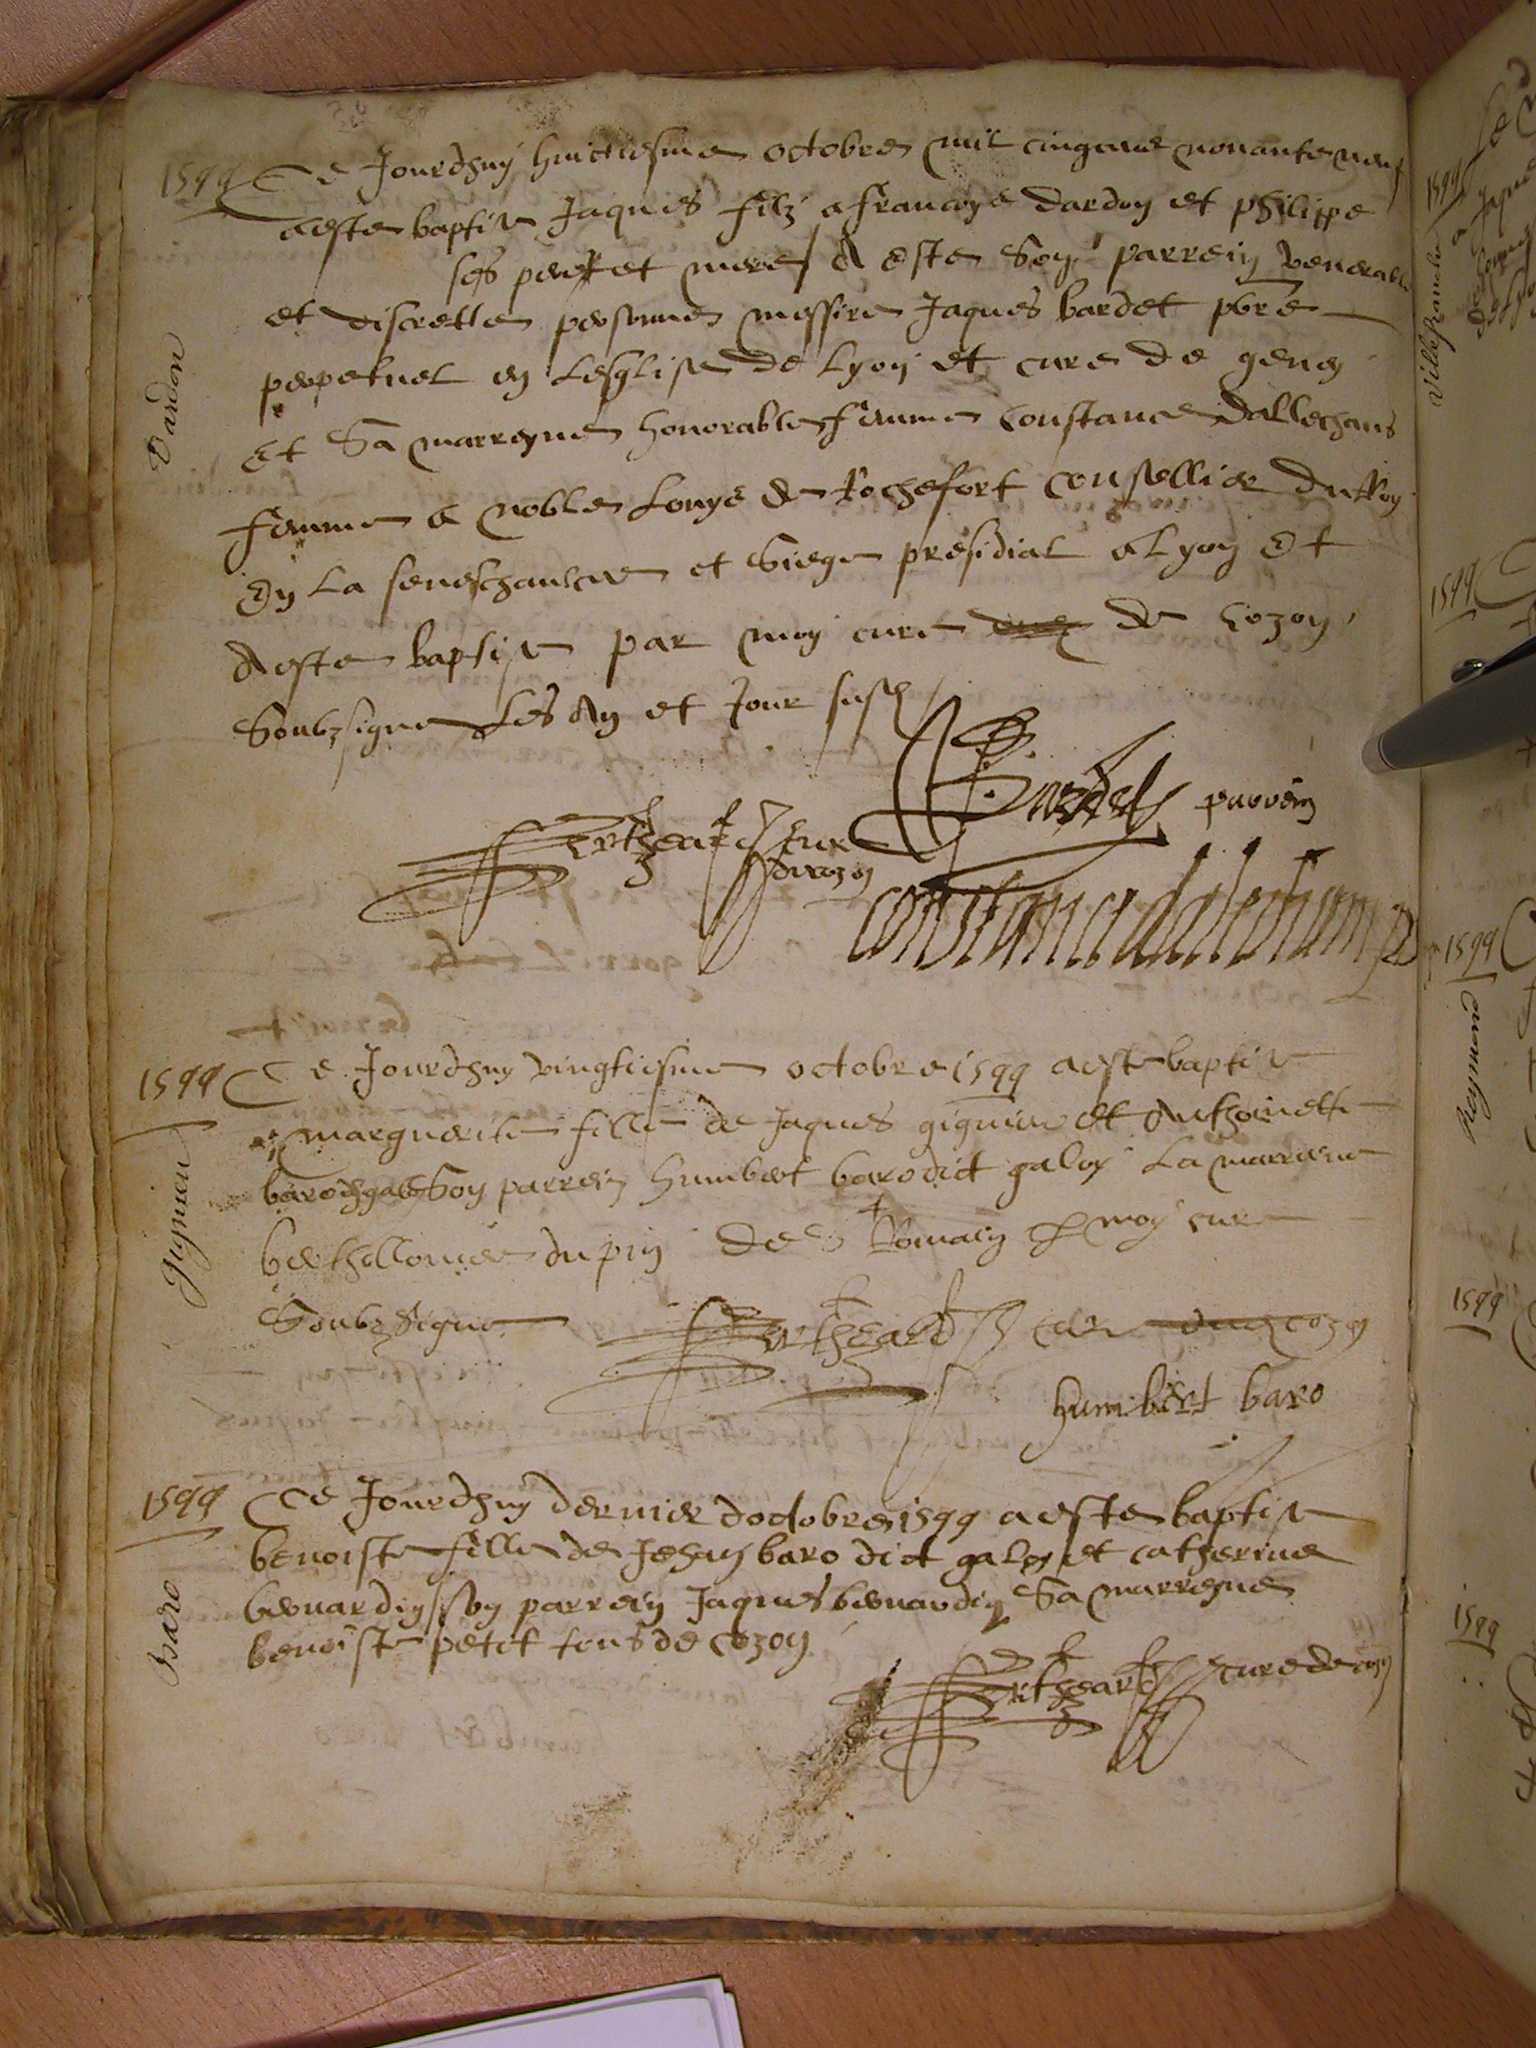 1599 Ce Jourdhuy huictiesme octobre mil cinq cens nonante neuf
a este baptise Jaques filz a francoys dardon et philippe
ses pere et mere A este Son parrein venerable
et discrette personne messire Jaques bardet pbre
perpetuel en Lesglise de Lyon et cure de genay
Et Sa marreyne honorable femme Constance dallechans
femme a noble Louys de Rochefort consellier du Roy
En La seneschaulcee et Siege presidial a Lyon Et
A este baptise par moy cure de Cozon
Soubzsigne Les An et Jour susd
Dardon
Bardet parrein
Bertheard cure
de cozon
constance dalechams
1599 Ce Jourdhuy vingtiesme octobre 1599 a este baptise
marguerite fille de Jaques gignieu et Anthoinette
baro Son parrein humbert baro dict galoy La marreine
berthellomee du pin de St Romain p moy cure
Soubzsigne Bertheard cure de cozon
Gignieu
humbert baro
1599 Ce Jourdhuy dernier doctobre 1599 a este baptise
benoiste fille de Jehan baro dict galoy et catherine
bernardin son parrein Jaques bernardin Sa marreyne
benoiste petit tous de Cozon
Baro
Bertheard cure de cozon
1599
Villefranche
1599
1599
1599
1599